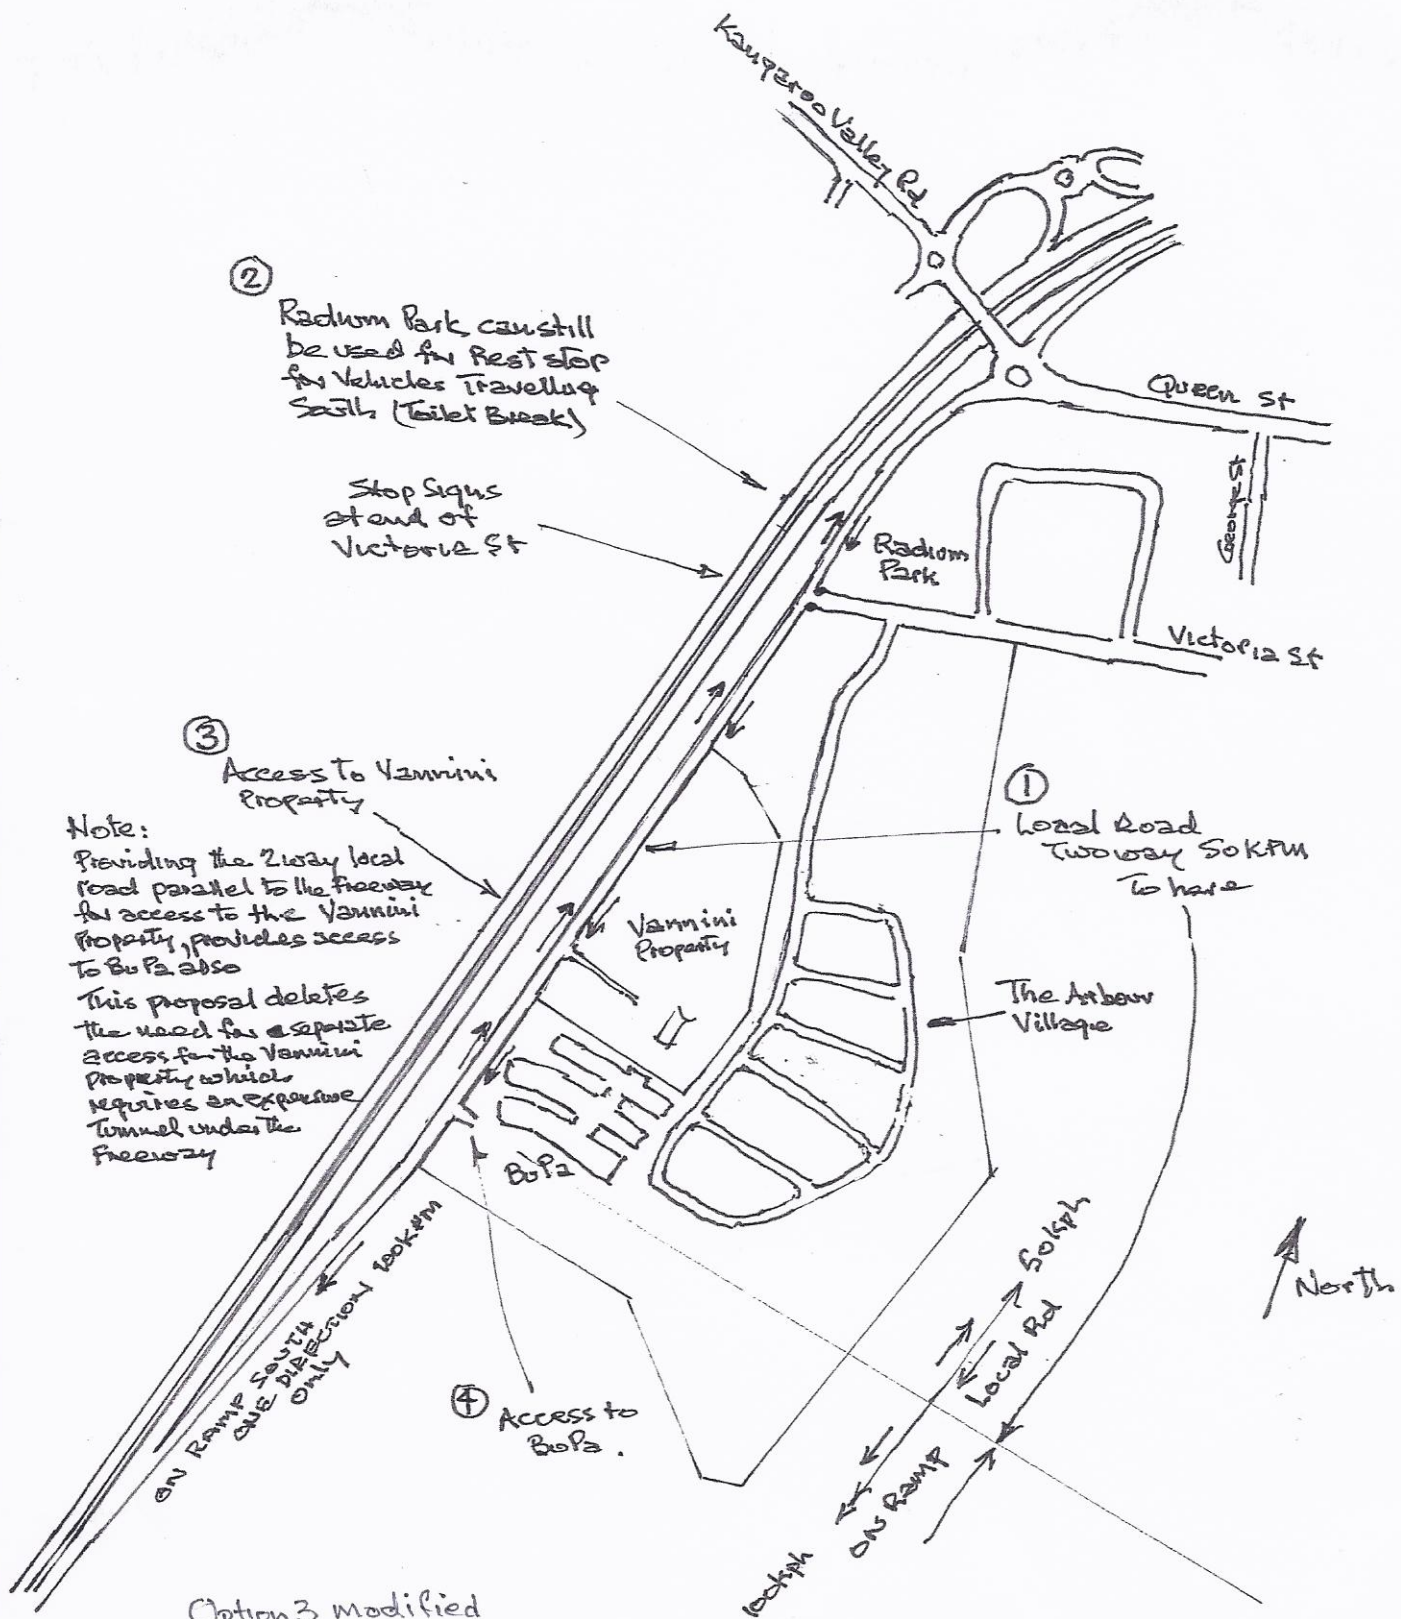 Kangaroo Valley Rd
②
Radium Park can still
be used for Rest stop
for Vehicles Travelling
South (Toilet Break)
Queen St
George St
Stop Signs
at end of
Victoria St
Radium
Park
Victoria St
③
Access To Vannini
Property
①
Local Road
Two way 50KPM
To here
Note:
Providing the 2 way local
road parallel to the freeway
for access to the Vannini
Property, provides access
To BuPa also
This proposal deletes
the need for a separate
access for the Vannini
Property which
requires an expensive
Tunnel under the
Freeway
Vannini
Property
The Arbour
Village
BuPa
ON RAMP SOUTH
ONE DIRECTION 100KPM
Only
④
Access to
BuPa.
50kph
Local Rd
ON Ramp
100kph
North
Option 3 modified